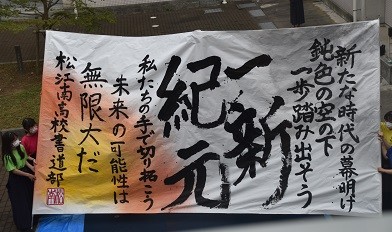 新たな時代の幕明け
鈍色の空の下
一歩踏み出そう
一新
紀元
私たちの手で切り拓こう
未来の可能性は
無限大だ
松江南高校書道部